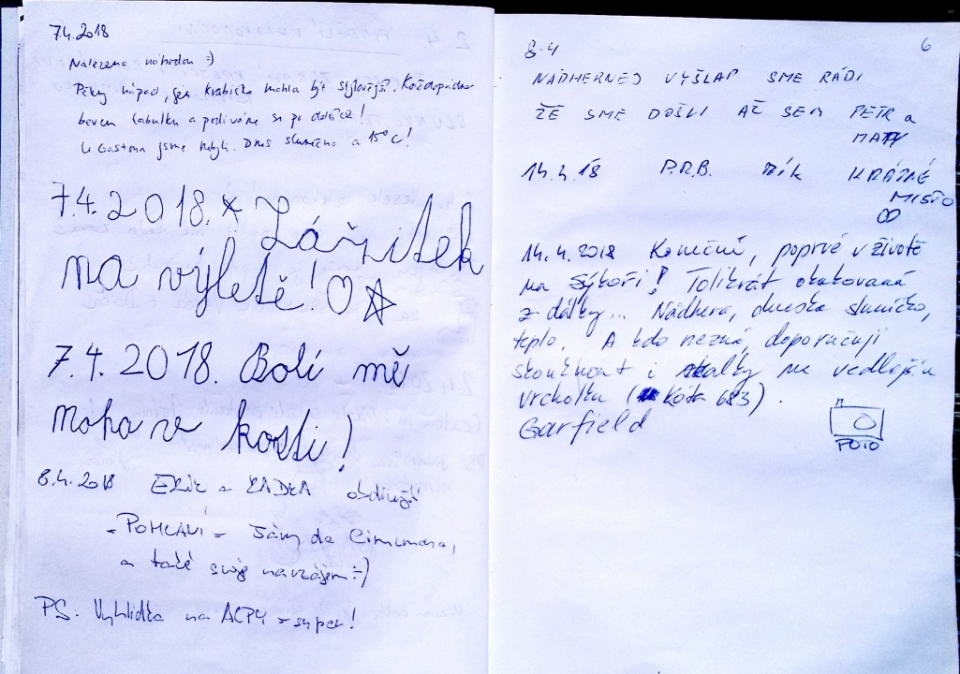 7.4.2018
Nalezeno náhodou :)
Pěkný nápad, jen krabička mohla být stylovější. Každopádně
berem tabulku a podíváme se po další!
U Gastona jsme nebyli. Dnes slunečno a 15°C!
7.4.2018. Zážitek
na výletě!
7.4.2018. Bolí mě
noha v kosti!
8.4.2018 ERIK a RADKA obdivují
"POHLAVÍ" Járy da Cimrmana,
a také svoje navzájem :-)
PS. Vyhlídka na ALPY = super!
6
8.4
NÁDHERNEJ VÝŠLAP SME RÁDI
ŽE SME DOŠLI AŽ SEM PETR a
MATY
14.4.18 P.R.B. Dík KRÁSNÉ
MÍSTO
14.4.2018 Konečně, poprvé v životě
na Sýkoři! Tolikrát okukovaná
z dálky... Nádhera, dneska sluníčko,
teplo. A kdo nezná, doporučuji
skouknout i skalky na vedlejším
vrcholku (Kóta 683).
Garfield
FOTO